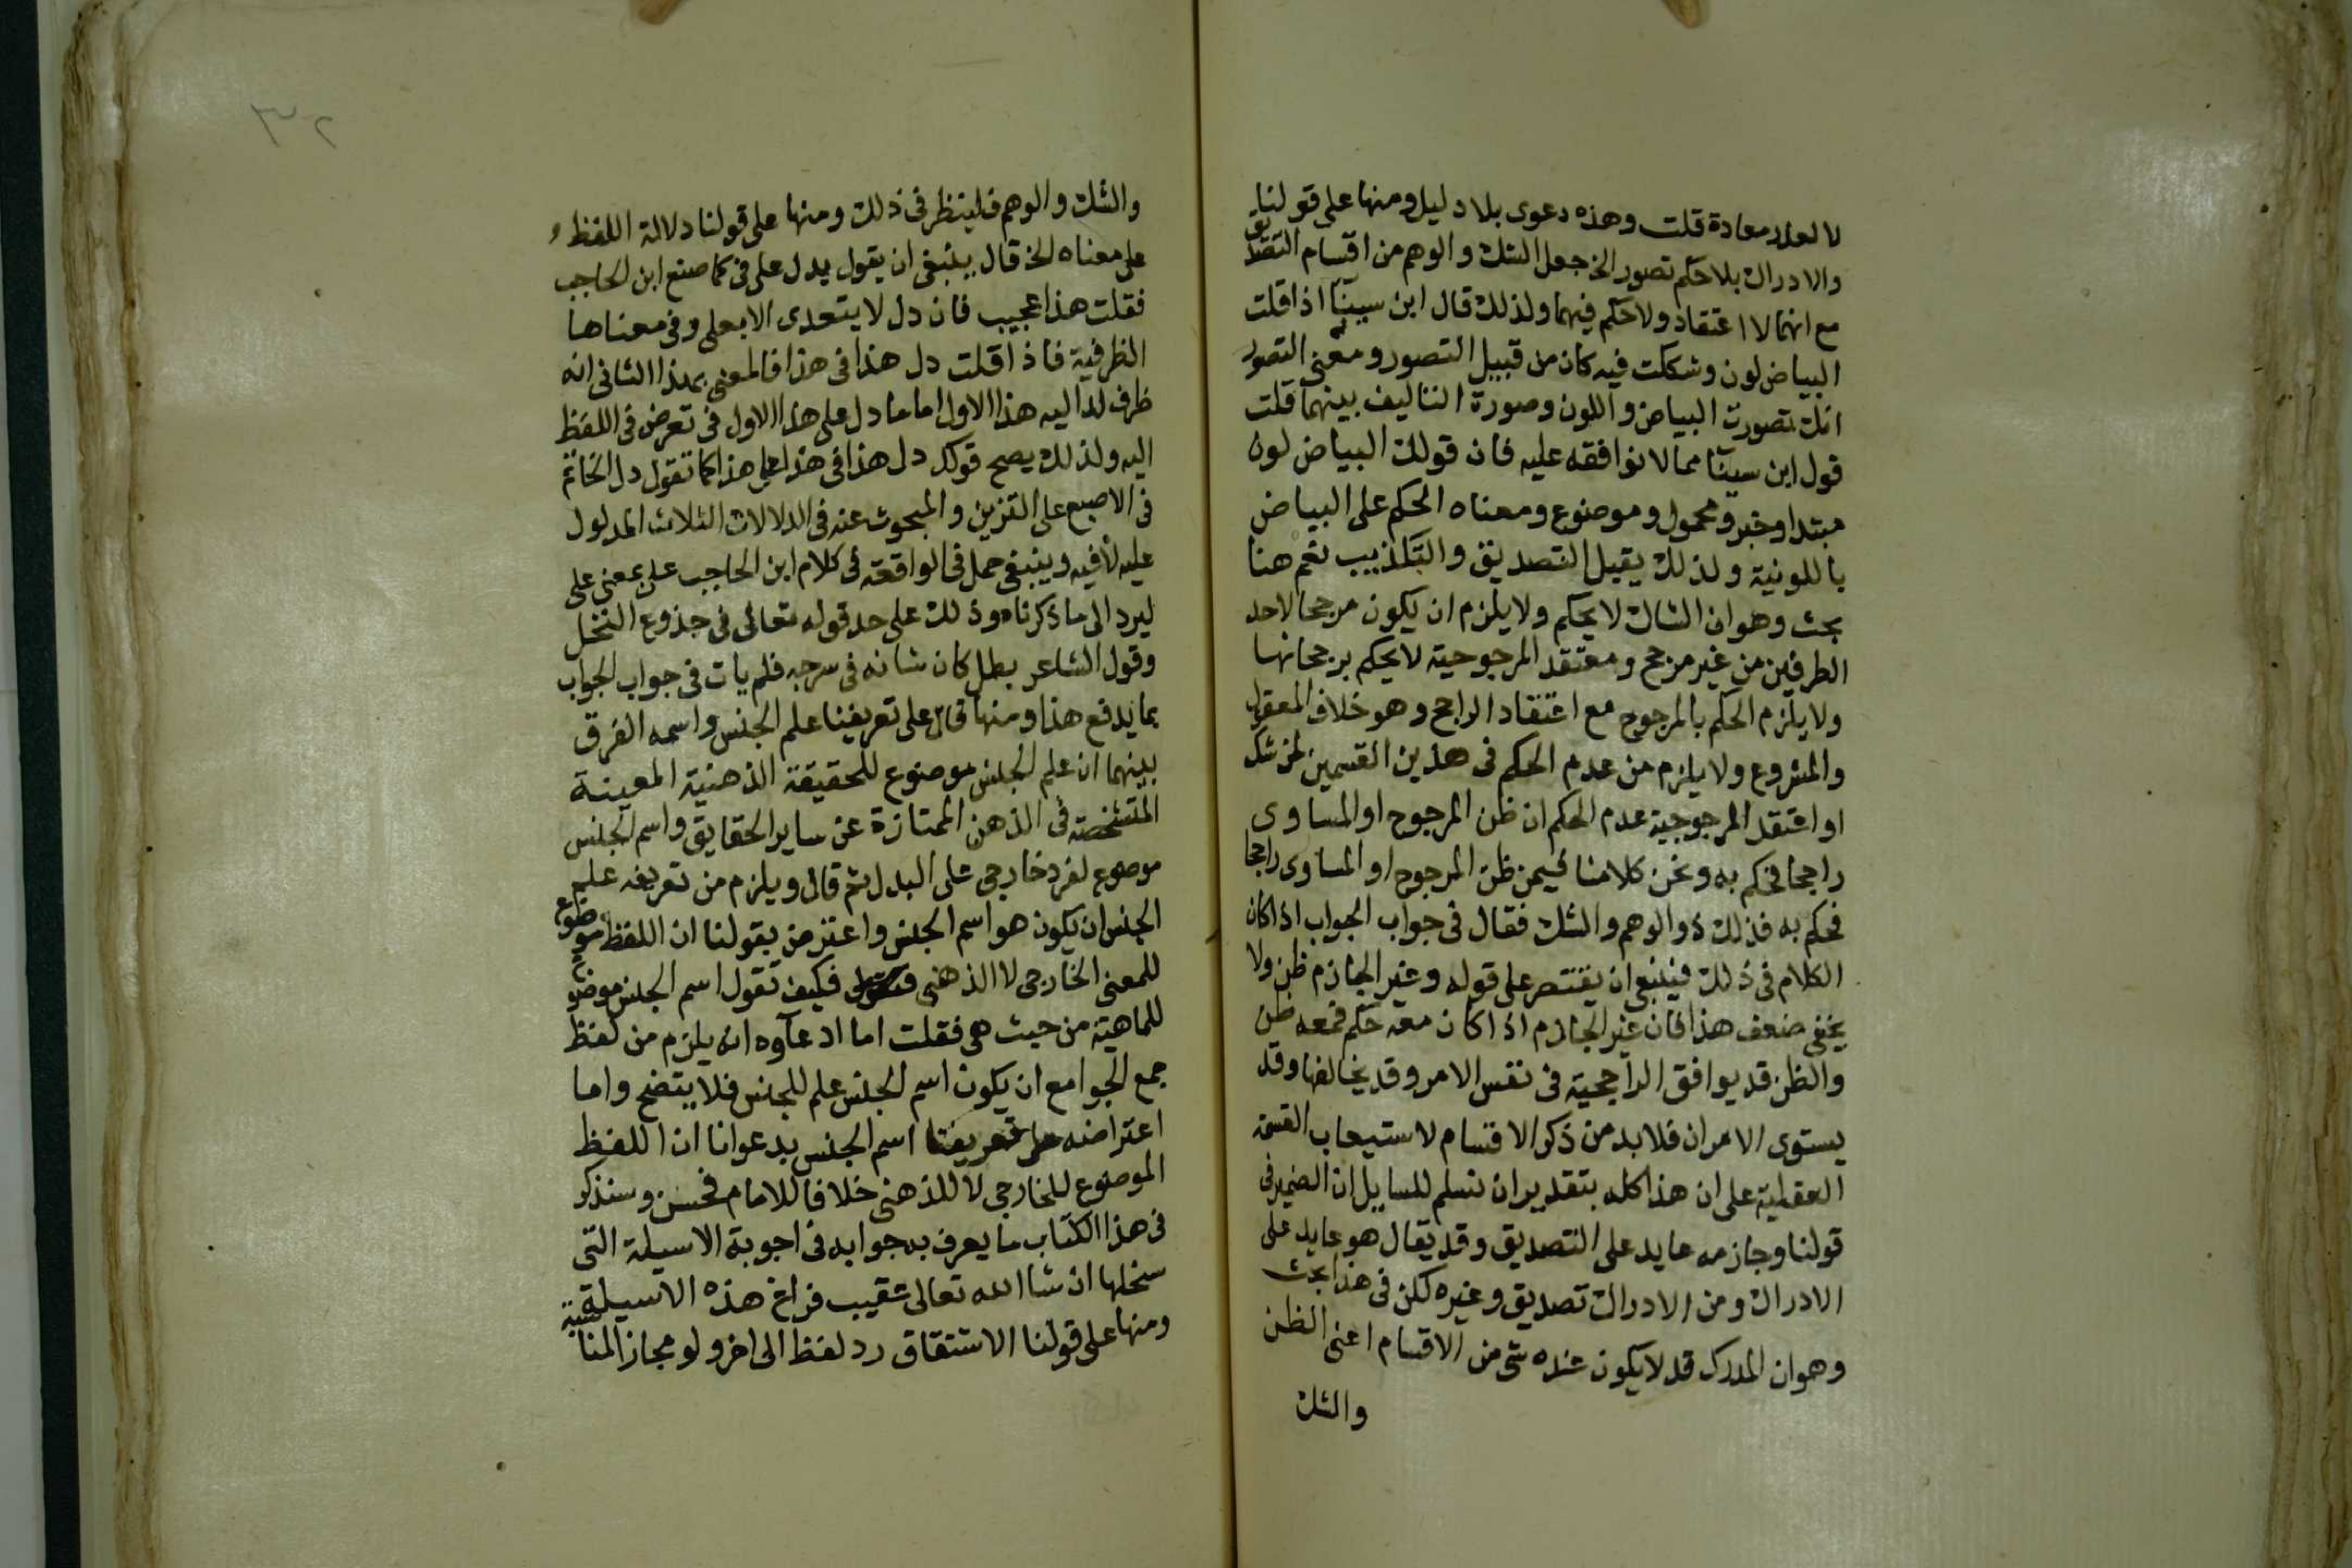 لا لعلار معادة قلت وهذه دعوى بلا دليل ومنها على قولنا
والادراك بلا حكم تصور الخ جعل الشك والوهم من اقسام التصديق
مع انهما لا اعتقاد ولا حكم فيهما ولذلك قال ابن سينا اذا قلت
البياض لون وشككت فيه كان من قبيل التصور ومعنى التصور
انك تصورت البياض واللون وصورة التاليف بينهما قلت
قول ابن سينا مما لا نوافقه عليه فان قولك البياض لون
مبتدا وخبر ومحمول وموضوع ومعناه الحكم على البياض
باللونية ولذلك يقبل التصديق والتكذيب نعم هنا
بحث وهو ان الشاك لا يحكم ولا يلزم ان يكون مرجحا لاحد
الطرفين من غير مرجح ومعتقد المرجوحية لا يحكم برجحانها
ولا يلزم الحكم بالمرجوح مع اعتقاد الراجح وهو خلاف المعقول
والمشروع ولا يلزم من عدم الحكم فى هذين القسمين لمن شك
او اعتقد المرجوحية عدم الحكم ان ظن المرجوح او المساوى
راجحا فحكم به ونحن كلامنا فيمن ظن المرجوح او المساوى راجحا
فحكم به فذلك ذو الوهم والشك فقال فى جواب الجواب اذا كان
الكلام فى ذلك فينبغى ان يقتصر على قوله وغير الجازم ظن ولا
يخفى ضعف هذا فان غير الجازم اذا كان معه حكم فمعه ظن
والظن قد يوافق الراجحية فى نفس الامر وقد يخالفها وقد
يستوى الامران فلا بد من ذكر الاقسام لاستيعاب القسمة
العقلية على ان هذا كله بتقدير ان نسلم للسايل ان الضمير فى
قولنا وجازمه عايد على التصديق وقد يقال هو عايد على
الادراك ومن الادراك تصديق وغيره لكن فى هذا بحث
وهو ان المدرك قد لا يكون عنده شى من الاقسام اعنى الظن
والشك
٣٢
والشك والوهم فلينظر فى ذلك ومنها على قولنا دلالة اللفظ
على معناه الخ قال ينبغى ان يقول يدل على فى كما صنع ابن الحاجب
فقلت هذا عجيب فان دل لا يتعدى الا بعلى وفى معناها
الظرفية فاذا قلت دل هذا فى هذا فالمعنى بهذا الثانى انه
ظرف لدا اليه هذا الاول اما ما دل على هذا الاول فى تعرض فى اللفظ
اليه ولذلك يصح قولك دل هذا فى هذا على هذا كما تقول دل الخاتم
فى الاصبع على التزين والمبحوث عنه فى الدلالات الثلاث المدلول
عليه لا فيه وينبغى حمل فى الواقعة فى كلام ابن الحاجب على معنى على
ليرد الى ما ذكرناه وذلك على حد قوله تعالى فى جذوع النخل
وقول الشاعر بطل كان ثيابه فى سرجه فلم يات فى جواب الجواب
بما يدفع هذا ومنها قال على تعريفنا علم الجنس واسمه الفرق
بينهما ان علم الجنس موضوع للحقيقة الذهنية المعينة
المتشخصة فى الذهن الممتازة عن ساير الحقايق واسم الجنس
موضوع لفرد خارجى على البدل ثم قال ويلزم من تعريفه علم
الجنس ان يكون هو اسم الجنس واعترض بقولنا ان اللفظ موضوع
للمعنى الخارجى لا الذهنى فكيف تقول اسم الجنس موضوع
للماهية من حيث هى فقلت اما ادعاوه انه يلزم من لفظ
جمع الجوامع ان يكون اسم الجنس علم للجنس فلا يتضح واما
اعتراضه على تعريفنا اسم الجنس بدعوانا ان اللفظ
الموضوع للخارجى لا للذهنى خلافا للامام فحسن وسنذكر
فى هذا الكتاب ما يعرف به جوابه فى اجوبة الاسيلة التى
سنخلها ان شا الله تعالى عقيب فراغ هذه الاسيلة
ومنها على قولنا الاشتقاق رد لفظ الى اخر ولو مجازا لمناسبة